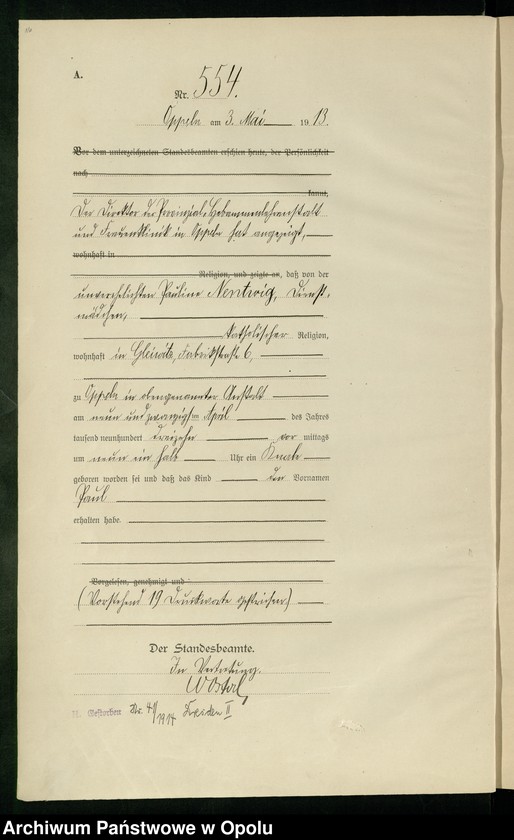 A.
Nr. 554.
Oppeln am 3. Mai 1913.
Vor dem unterzeichneten Standesbeamten erschien heute, der Persönlichkeit
nach
kannt,
Der Direktor der Provinzial-Hebammenlehranstalt
und Frauenklinik in Oppeln hat angezeigt,
wohnhaft in
Religion, und zeigte an, daß von der
unverehelichten Pauline Nentwig, Dienst-
mädchen,
katholischer Religion,
wohnhaft in Gleiwitz, Fabrikstraße 6,
zu Oppeln in obengenannter Anstalt
am neun und zwanzigsten April des Jahres
tausend neunhundert dreizehn vor mittags
um neun ein halb Uhr ein Knabe
geboren worden sei und daß das Kind den Vornamen
Paul
erhalten habe.
Vorgelesen, genehmigt und
(Vorstehend 19 Druckworte gestrichen)
Der Standesbeamte.
In Vertretung.
Gestorben Nr. 1914 II
Archiwum Państwowe w Opolu